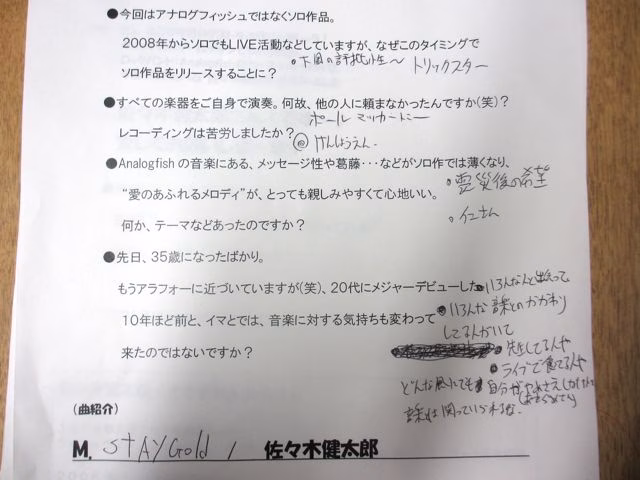 ●今回はアナログフィッシュではなくソロ作品。
2008年からソロでもLIVE活動などしていますが、なぜこのタイミングで
ソロ作品をリリースすることに?
トリックスター
●すべての楽器をご自身で演奏。何故、他の人に頼まなかったんですか(笑)?
ポール マッカートニー
レコーディングは苦労しましたか?
けんしょうえん
●Analogfishの音楽にある、メッセージ性や葛藤・・・などがソロ作では薄くなり、
震災後の希望
“愛のあふれるメロディ”が、とっても親しみやすくて心地いい。
何か、テーマなどあったのですか?
●先日、35歳になったばかり。
もうアラフォーに近づいていますが(笑)、20代にメジャーデビューした
いろんな人と出会って
10年ほど前と、イマとでは、音楽に対する気持ちも変わって
いろんな音楽とのかかわり
してる人がいて
来たのではないですか?
先生してる人や
ライブで食べてる人や
どんな風にでも自分が
音楽は関っていられるな。
(曲紹介)
M. STAY Gold / 佐々木健太郎